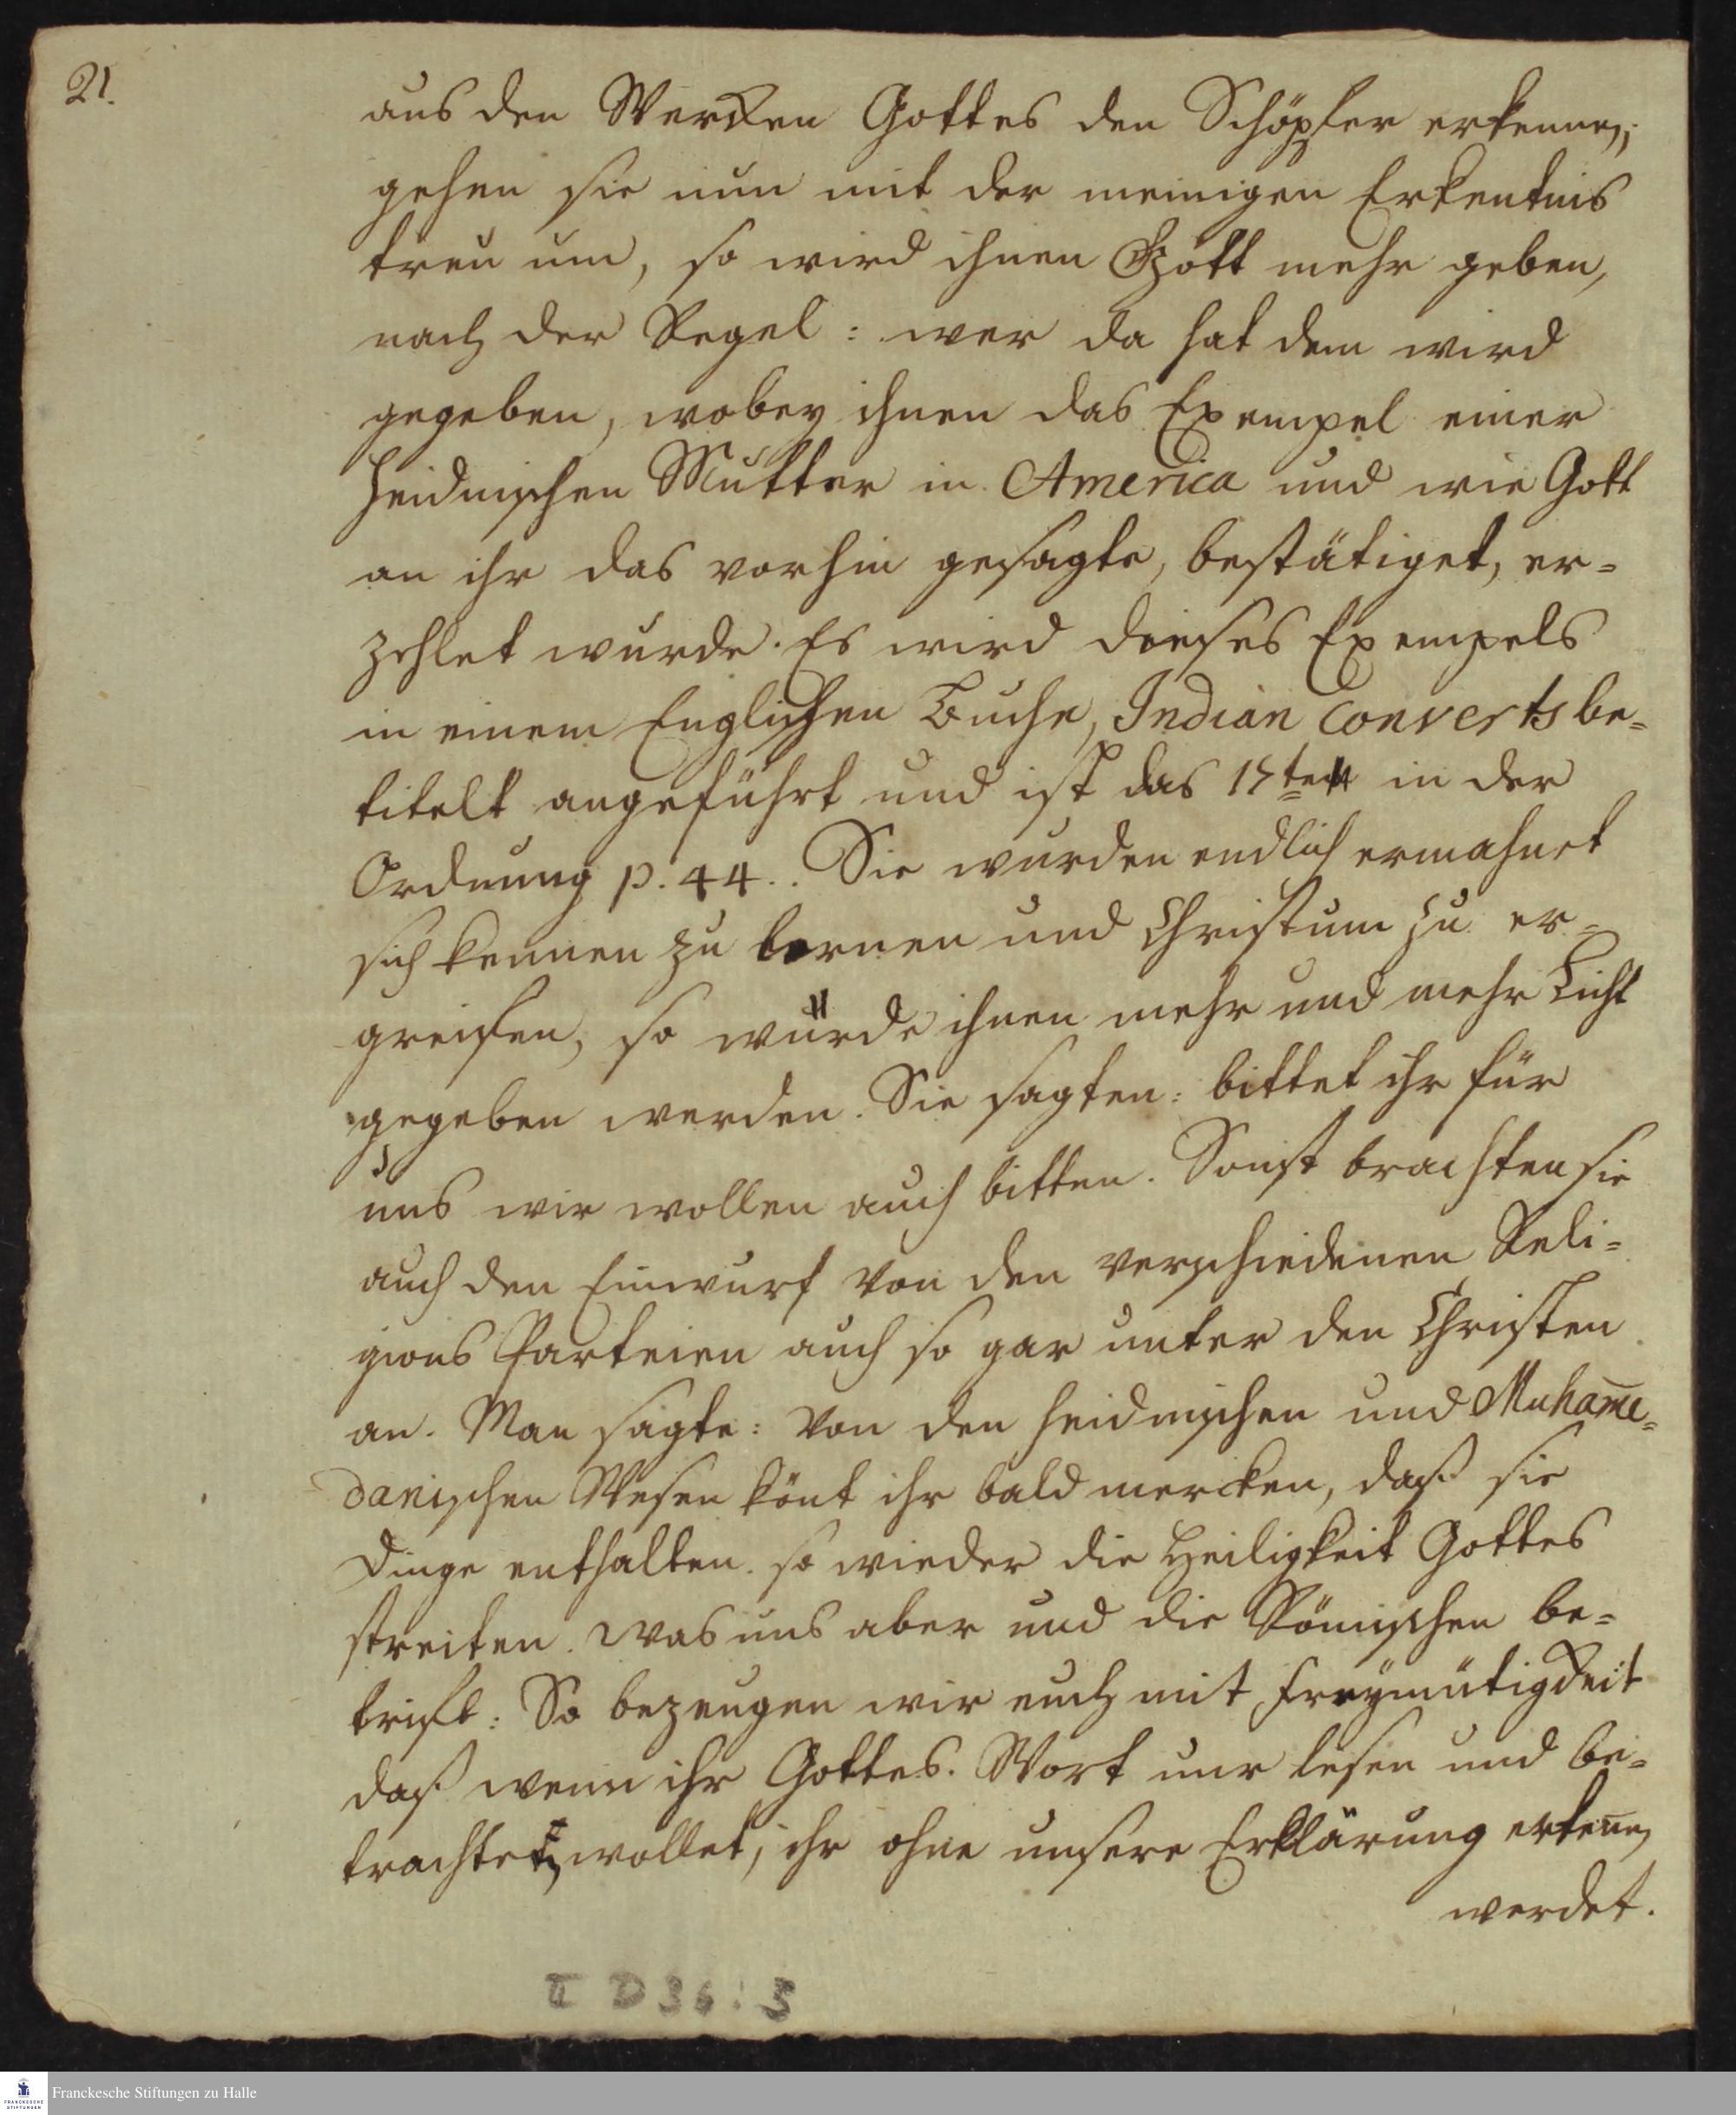 21.
aus den Wercken Gottes den Schöpfer erkennen;
gehen sie nun mit der wenigen Erkentnis
treu um, so wird ihnen Gott mehr geben,
nach der Regel: wer da hat dem wird
gegeben, wobey ihnen das Exempel einer
Heidnischen Mutter in America und wie Gott
an ihr das vorhin gesagte, bestätiget, er=
zehlet wurde. Es wird dieses Exempels
in einem Englischen Buche, Indian Converts be=
titelt angeführt und ist das 15te in der
Ordnung p. 44.. Sie wurden endlich ermahnet
sich kennen zu lernen und Christum zu er=
greifen, so würde ihnen mehr und mehr Licht
gegeben werden. Sie sagten: bittet ihr für
uns wir wollen auch bitten. Sonst brachten sie
auch den Einwurf von den verschiedenen Reli=
gions Parteien auch so gar unter den Christen
an. Man sagte: Von den heidnischen und Muham̅e=
danischen Wesen könt ihr bald mercken, daß sie
Dinge enthalten. so wieder die Heiligkeit Gottes
streiten. Was uns aber und die Römischen be=
trift: So bezeugen wir euch mit Freymütigkeit
daß wenn ihr Gottes. Wort nur lesen und be=
trachten wollet, ihr ohne unsere Erklärung erken̅en
werdet.
II D 36 : 3
Franckesche Stiftungen zu Halle
FRANCKESCHE
STIFTUNGEN